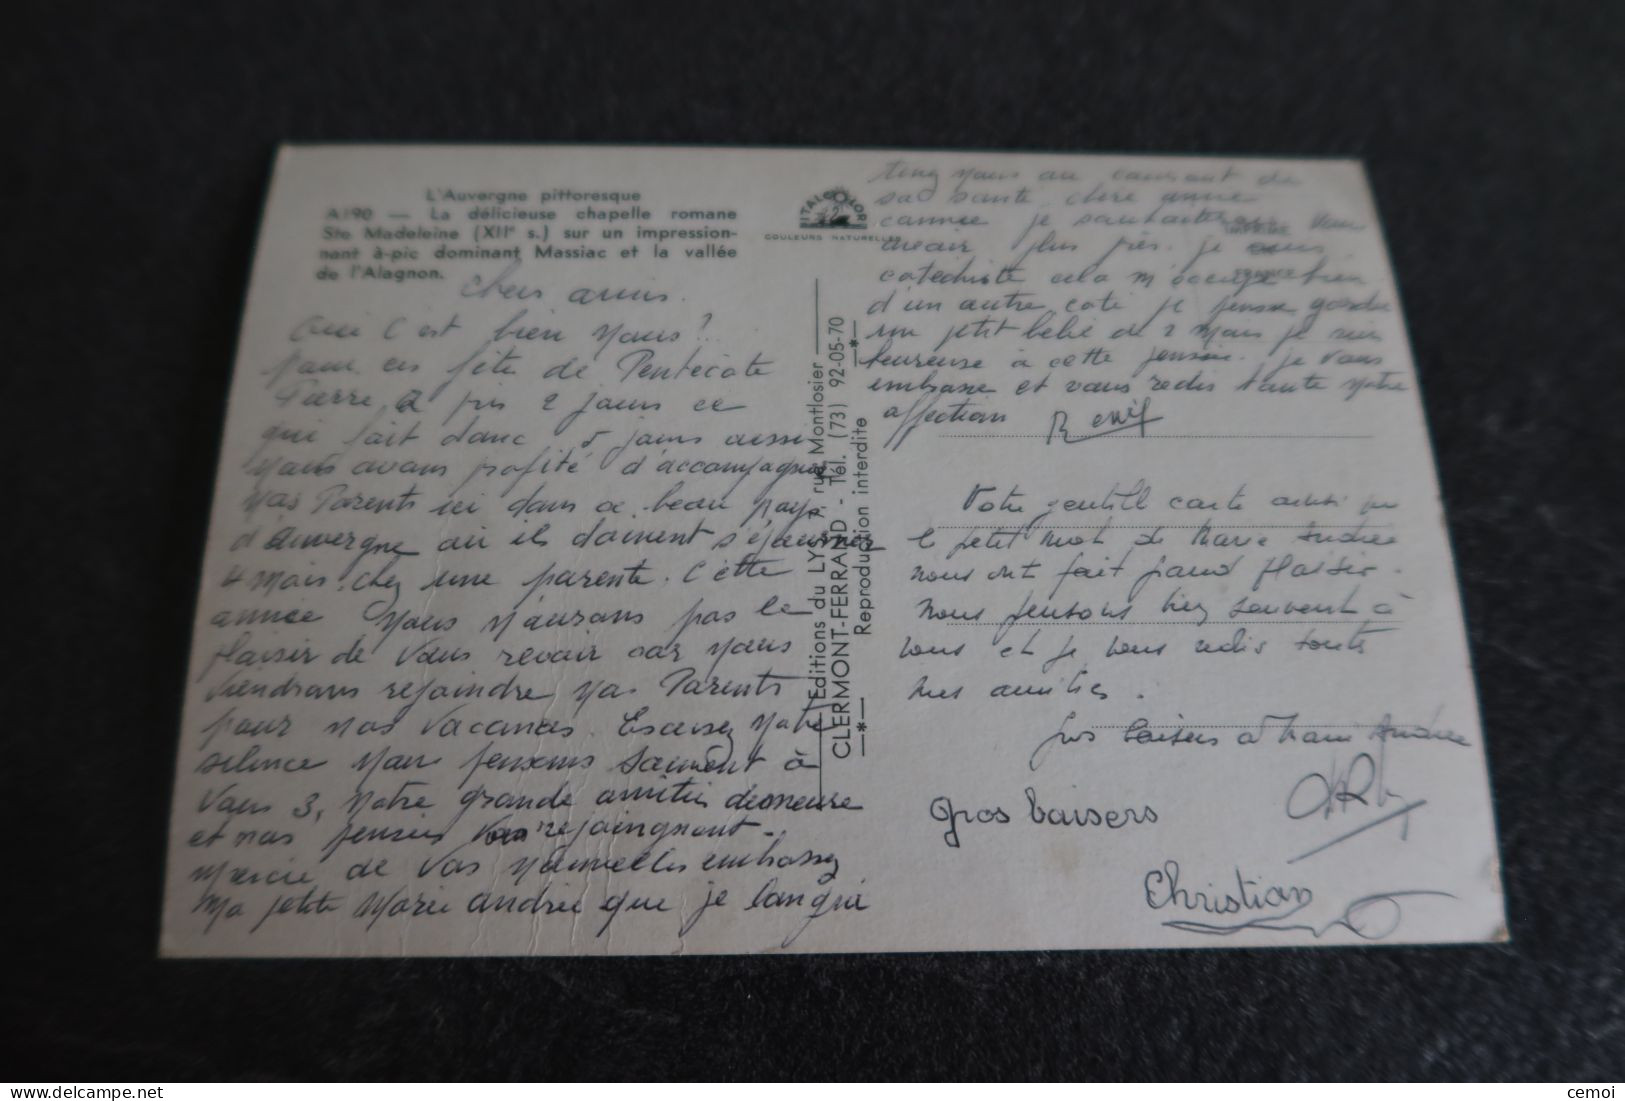 L'Auvergne pittoresque
A190 — La délicieuse chapelle romane
Ste Madeleine (XIIe s.) sur un impression-
nant à-pic dominant Massiac et la vallée
de l'Alagnon.
ITALCOLOR
COULEURS NATURELLES
Editions du LYS, rue Montlosier
CLERMONT-FERRAND - Tél. (73) 92-05-70
Reproduction interdite
Chers amis.
Oui c'est bien nous?
pour ces fête de Pentecôte
Pierre, a pris 2 jours ce
qui fait donc 5 jours aussi
nous avons profité d'accompagner
nos Parents ici dans ce beau pays
d'Auvergne où ils doivent séjourner
4 mois chez une parente. Cette
année nous n'aurons pas le
plaisir de vous revoir car nous
viendrons rejoindre nos Parents
pour nos vacances. Excusez notre
silence nous pensons souvent à
vous 3, notre grande amitié demeure
et nos pensées vous rejoingnent.
Mercie de vos nouvelles embrassez
ma petite Marie andrée que je langui
tenez nous au courant de
sa santé, chère amie
comme je souhaiterais vous
avoir plus près. je suis
catéchiste cela m'occupe bien
d'un autre coté je pense garder
un petit bébé de 2 mois je suis
heureuse à cette pensée. je vous
embrasse et vous redis toute notre
affection
Votre gentill carte ainsi que
le petit mot de Marie Andrée
nous ont fait grand plaisir.
Nous pensons bien souvent à
vous et je vous redis toutes
mes amitiés.
Gros baisers à Marie Andrée
Gros baisers
Christian
cemoi